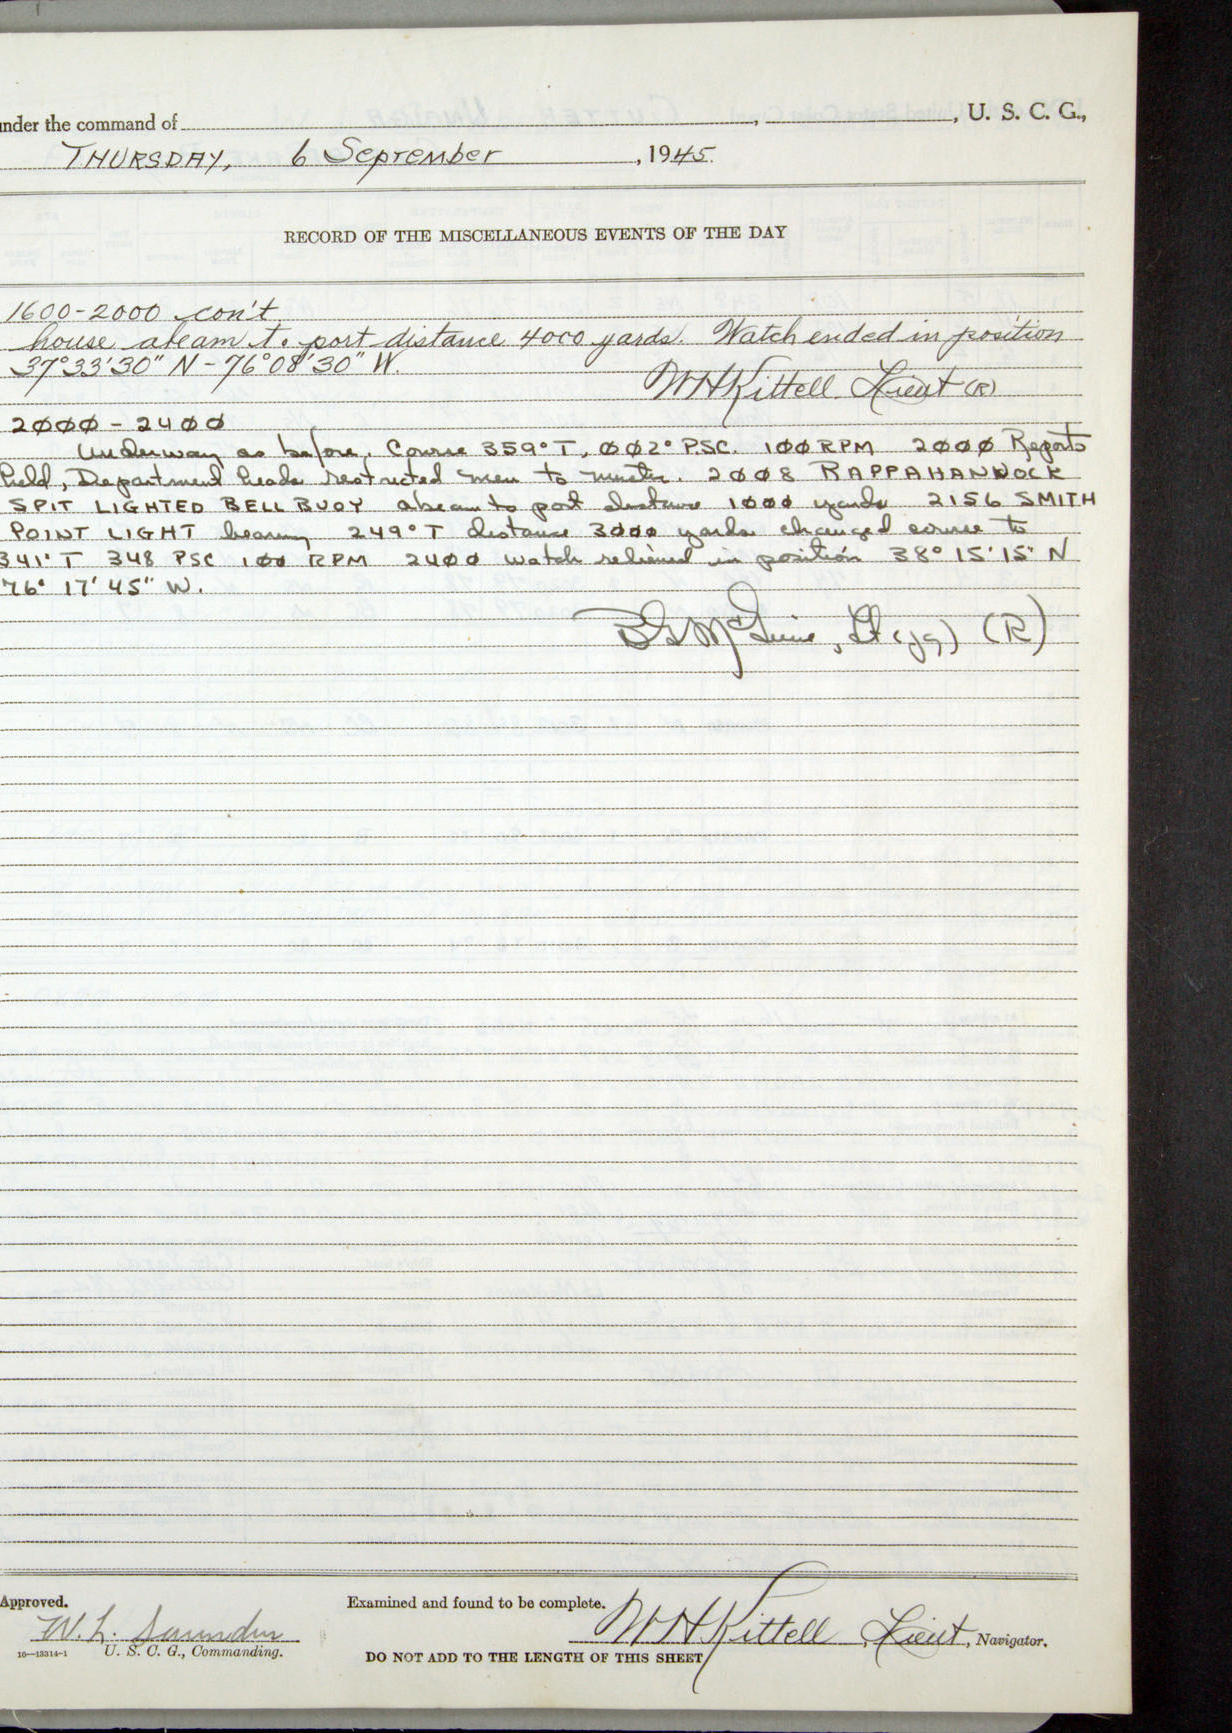 under the command of , , U. S. C. G.,
THURSDAY, 6 September , 1945.
RECORD OF THE MISCELLANEOUS EVENTS OF THE DAY
1600-2000 con't
house abeam to port distance 4000 yards. Watch ended in position
37°33'30" N - 76°08'30" W.
WHKittell Lieut (R)
2000 - 2400
Underway as before, Course 359° T, 002° PSC. 100 RPM 2000 Reports
held, Department heads restricted men to muster. 2008 RAPPAHANNOCK
SPIT LIGHTED BELL BUOY abeam to port distance 1000 yards 2156 SMITH
POINT LIGHT bearing 249° T distance 3000 yards changed course to
341° T 348 PSC 100 RPM 2400 watch relieved in position 38° 15' 15" N
76° 17' 45" W.
BGMcGuire, Lt (jg) (R)
Approved. Examined and found to be complete.
W. L. Saunders WHKittell Lieut, Navigator.
16—13314-1 U. S. C. G., Commanding.
DO NOT ADD TO THE LENGTH OF THIS SHEET